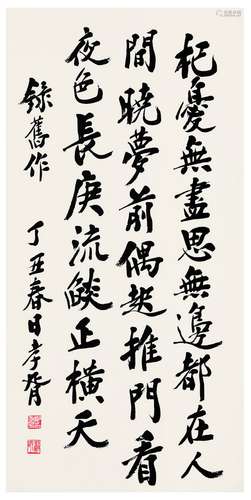 杞憂無盡思無邊都在人
間曉夢前偶起推門看
夜色長庚流燄正橫天
錄舊作
丁丑春日孝胥